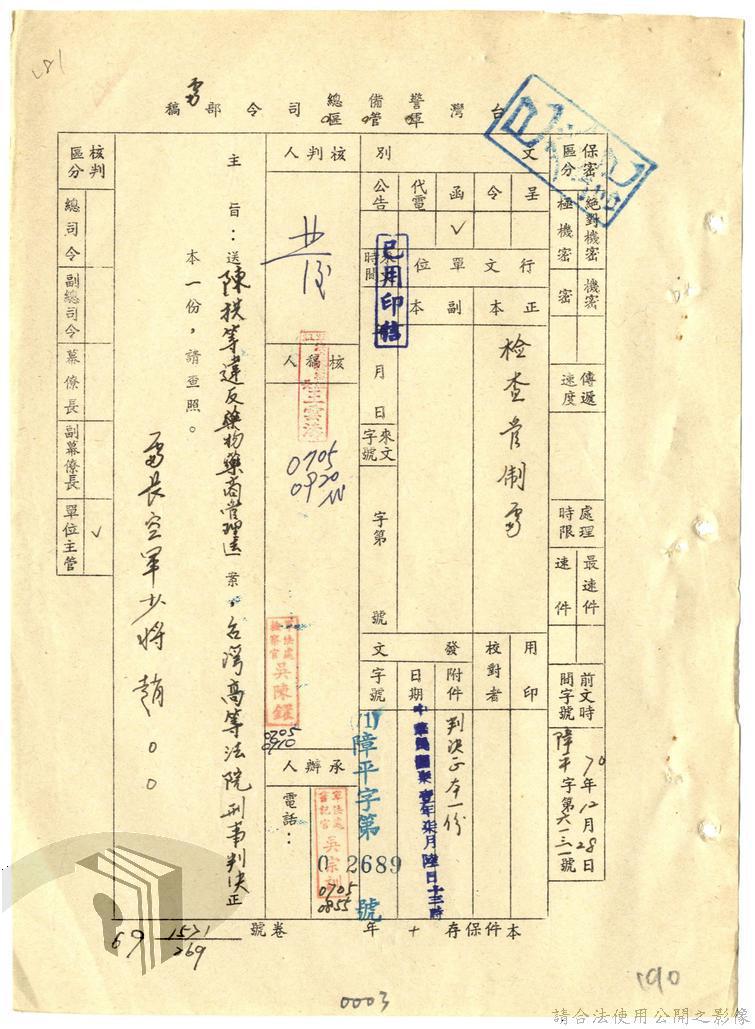 稿部令司總備警灣台
區管軍
處
保密區分
絕對機密
極機密
機密
密
傳遞速度
處理時限
最速件
速件
前文時間字號
70年12月28日
障平字第六一三一號
文別
呈
令
函
ˇ
代電
公告
行文單位
正本
副本
檢查管制處
來文時間
月
日
來文字號
字第
號
已用印信
用印
校對者
發文
附件
判決正本一份
日期
中華民國柒壹年柒月陸日十三時
字號
(1)障平字第
02689
號
核判人
核稿人
0705
0920
司法處
檢察官
吳陳鐶
0705
0910
承辦人
電話：
軍法處
書記官
0705
0855
主旨：送陳棋等違反藥物藥商管理法案，台灣高等法院刑事判決正
本一份，請查照。
處長空軍少將趙○○
核判區分
總司令
副總司令
幕僚長
副幕僚長
單位主管
ˇ
本件保存十年
卷號
1571
269
69
190
0003
請合法使用公開之影像